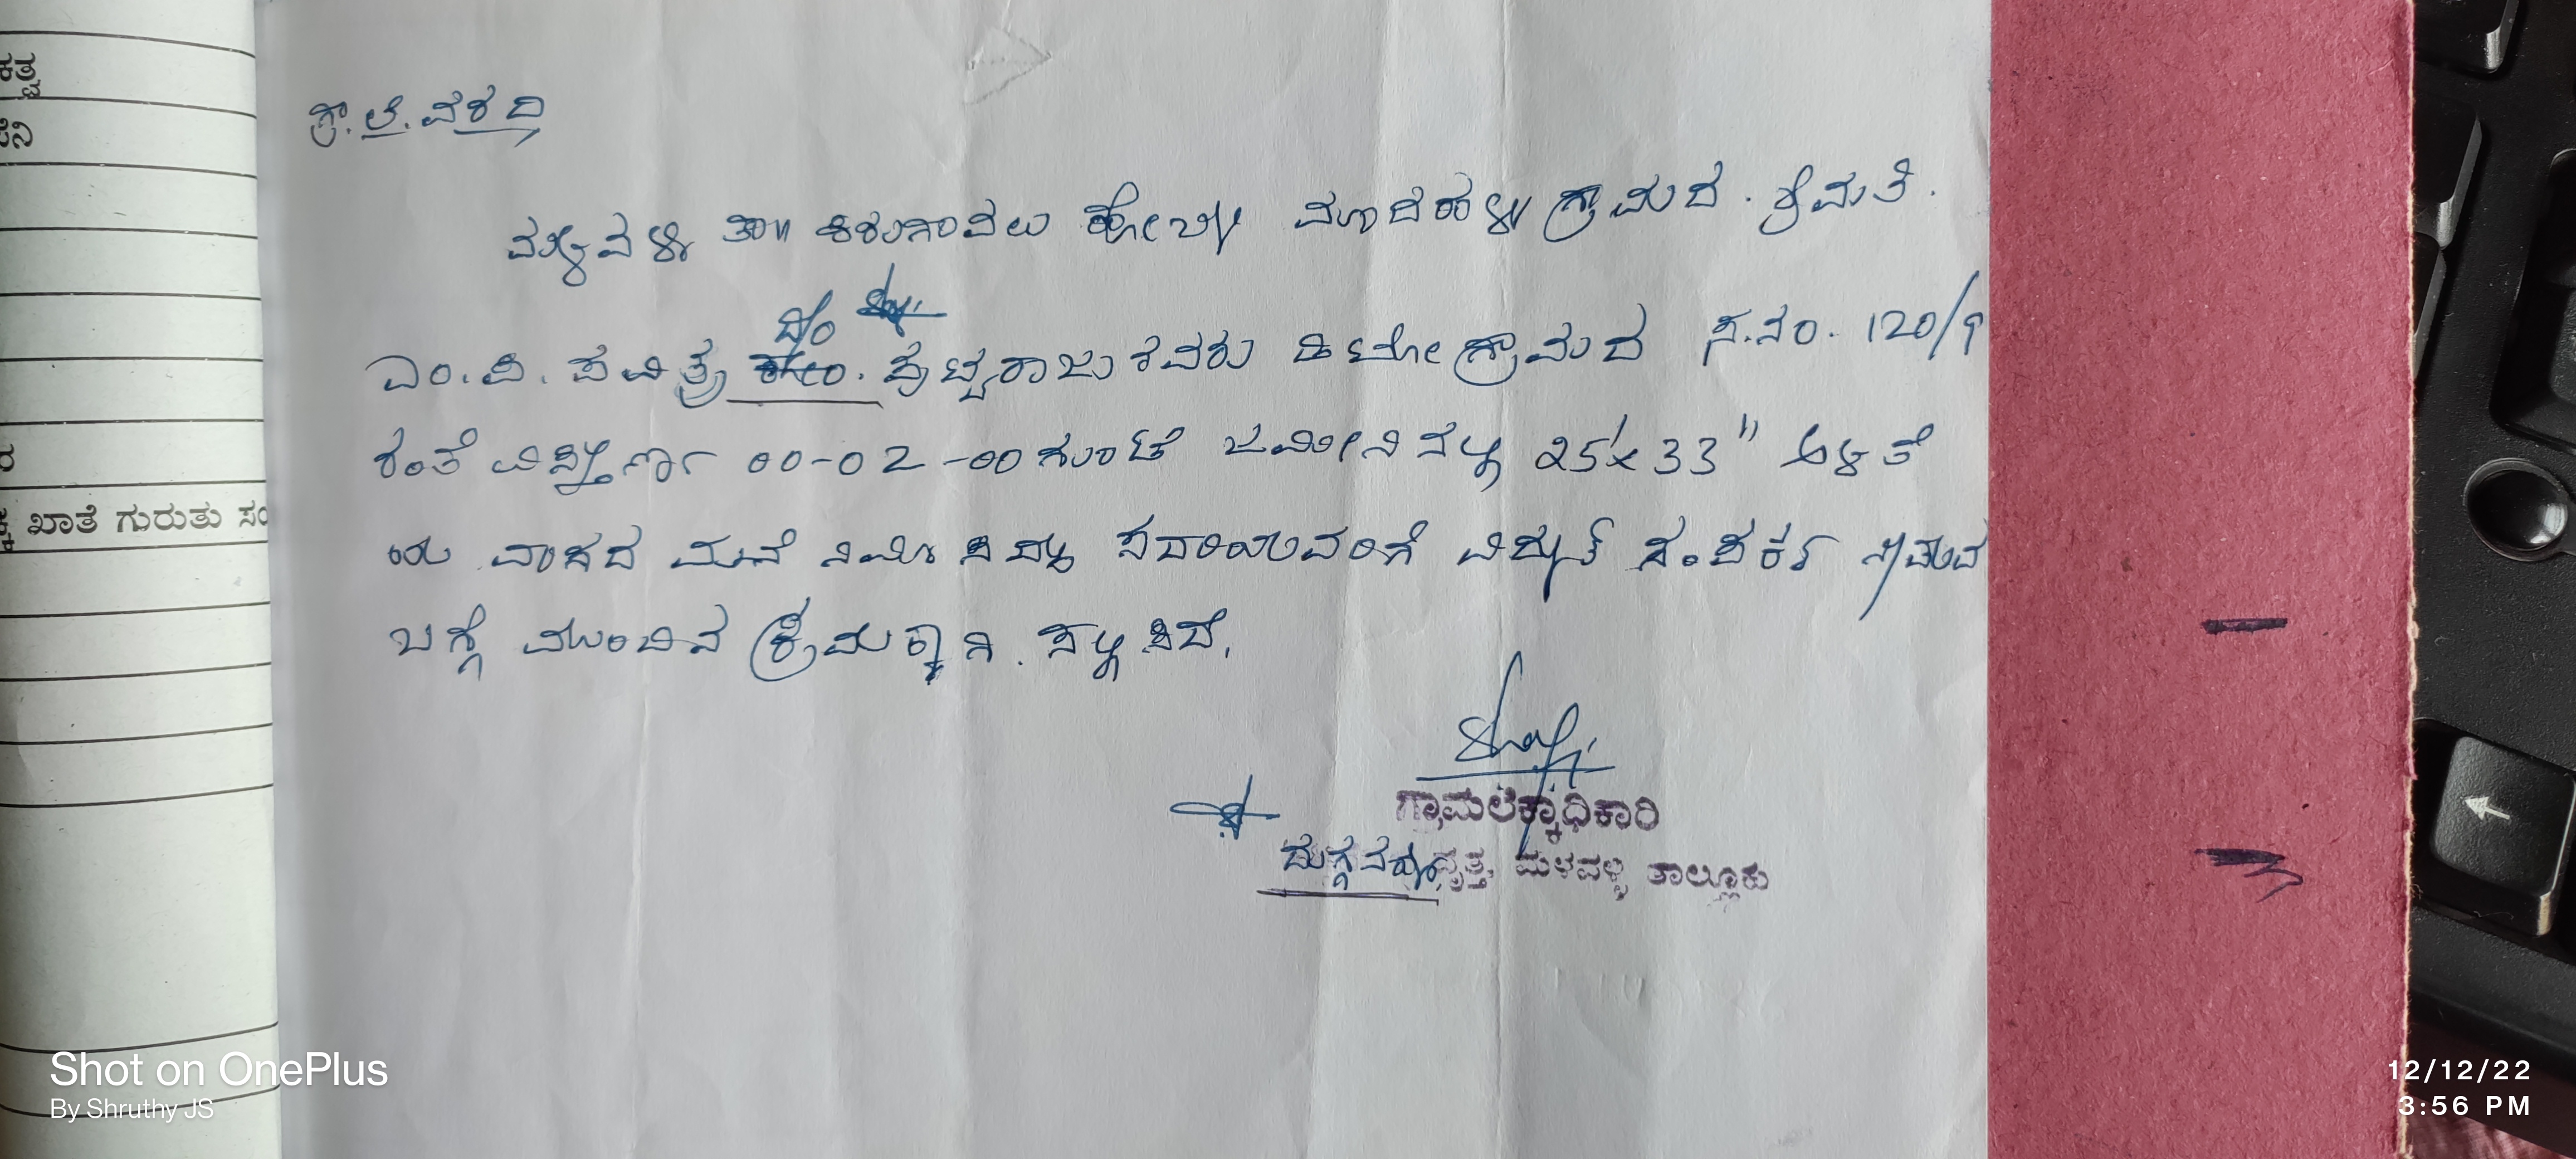 ಗ್ರಾ.ಲೆ.ವರದಿ
ಮಳವಳ್ಳಿ ತಾ॥ ಕಿರುಗಾವಲು ಹೋಬಳಿ ಗ್ರಾಮದ . ಶ್ರೀಮತಿ .
ದ/ಂ
ಎಂ.ಪಿ. ಪವಿತ್ರ ಪುಟ್ಟರಾಜು ರವರು ಗ್ರಾಮದ ಸ.ನಂ. 120/9
ರಂತೆ ವಿಸ್ತೀರ್ಣ 00-02-00 ಗುಂಟೆ ಜಮೀನಿನಲ್ಲಿ 25'x33" ಅಳತೆ
ಯ ವಾಸದ ಮನೆ ಸದರಿಯವರಿಗೆ ವಿದ್ಯುತ್ ಸಂಪರ್ಕ
ಬಗ್ಗೆ ಮುಂದಿನ ಕ್ರಮಕ್ಕಾಗಿ . ಸಲ್ಲಿಸಿದೆ.
ಗ್ರಾಮಲೆಕ್ಕಾಧಿಕಾರಿ
ವೃತ್ತ, ಮಳವಳ್ಳಿ ತಾಲ್ಲೂಕು
ಖಾತೆ ಗುರುತು ಸಂ
Shot on OnePlus
By Shruthy JS
12/12/22
3:56 PM